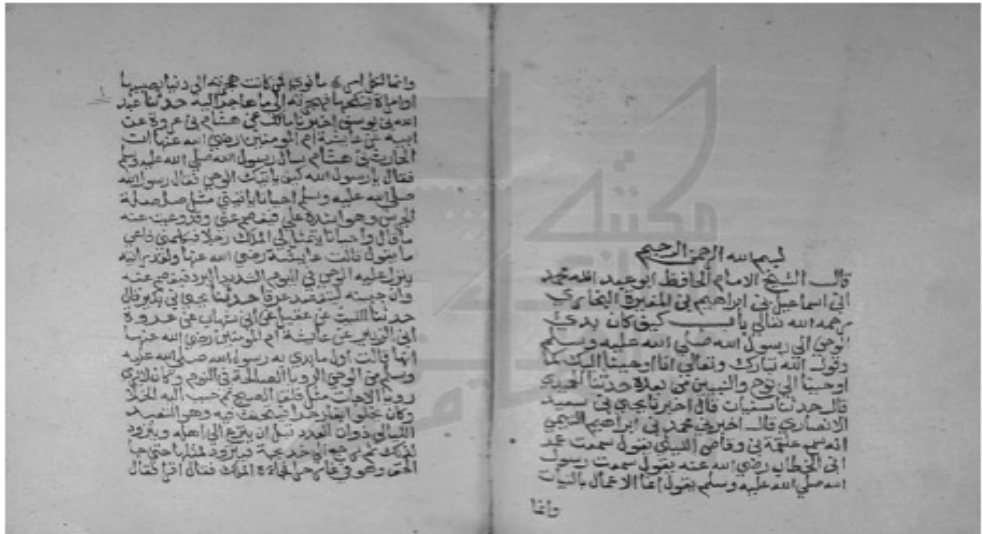 بسم الله الرحمن الرحيم
قال الشيخ الامام الحافظ ابو عبد الله محمد
ابن اسماعيل بن ابراهيم بن المغيرة البخاري
رحمه الله تعالى باب كيف كان بدئ
الوحي الى رسول الله صلى الله عليه وسلم
وقول الله تبارك وتعالى انا اوحينا اليك كما
اوحينا الى نوح والنبيين من بعده حدثنا الحميدي
قال حدثنا سفيان قال اخبرنا يحيى بن سعيد
الانصاري قال اخبرني محمد بن ابراهيم التيمي
انه سمع علقمة بن وقاص الليثي يقول سمعت عمر
ابن الخطاب رضي الله عنه يقول سمعت رسول
الله صلى الله عليه وسلم يقول انما الاعمال بالنيات
وانما
وانما لكل امرئ ما نوى فمن كانت هجرته الى دنيا يصيبها
او امراة ينكحها فهجرته الى ما هاجر اليه حدثنا عبد
الله بن يوسف اخبرنا مالك عن هشام بن عروة عن
ابيه عن عايشة ام المومنين رضي الله عنها ان
الحارث بن هشام سال رسول الله صلى الله عليه وسلم
فقال يا رسول الله كيف ياتيك الوحي فقال رسول الله
صلى الله عليه وسلم احيانا ياتيني مثل صلصلة
الجرس وهو اشده علي فيفصم عني وقد وعيت عنه
ما قال واحيانا يتمثل لي الملك رجلا فيكلمني فاعي
ما يقول قالت عايشة رضي الله عنها ولقد رايته
ينزل عليه الوحي في اليوم الشديد البرد فيفصم عنه
وان جبينه ليتفصد عرقا حدثنا يحيى بن بكير قال
حدثنا الليث عن عقيل عن ابن شهاب عن عروة
ابن الزبير عن عايشة ام المومنين رضي الله عنها
انها قالت اول ما بدي به رسول الله صلى الله عليه
وسلم من الوحي الرويا الصالحة في النوم وكان لا يرى
رويا الا جات مثل فلق الصبح ثم حبب اليه الخلا
وكان يخلو بغار حرا فيتحنث فيه وهو التعبد
الليالي ذوات العدد قبل ان ينزع الى اهله ويتزود
لذلك ثم يرجع الى خديجة فيتزود لمثلها حتى جا
الحق وهو في غار حرا فجاءه الملك فقال اقرا فقال